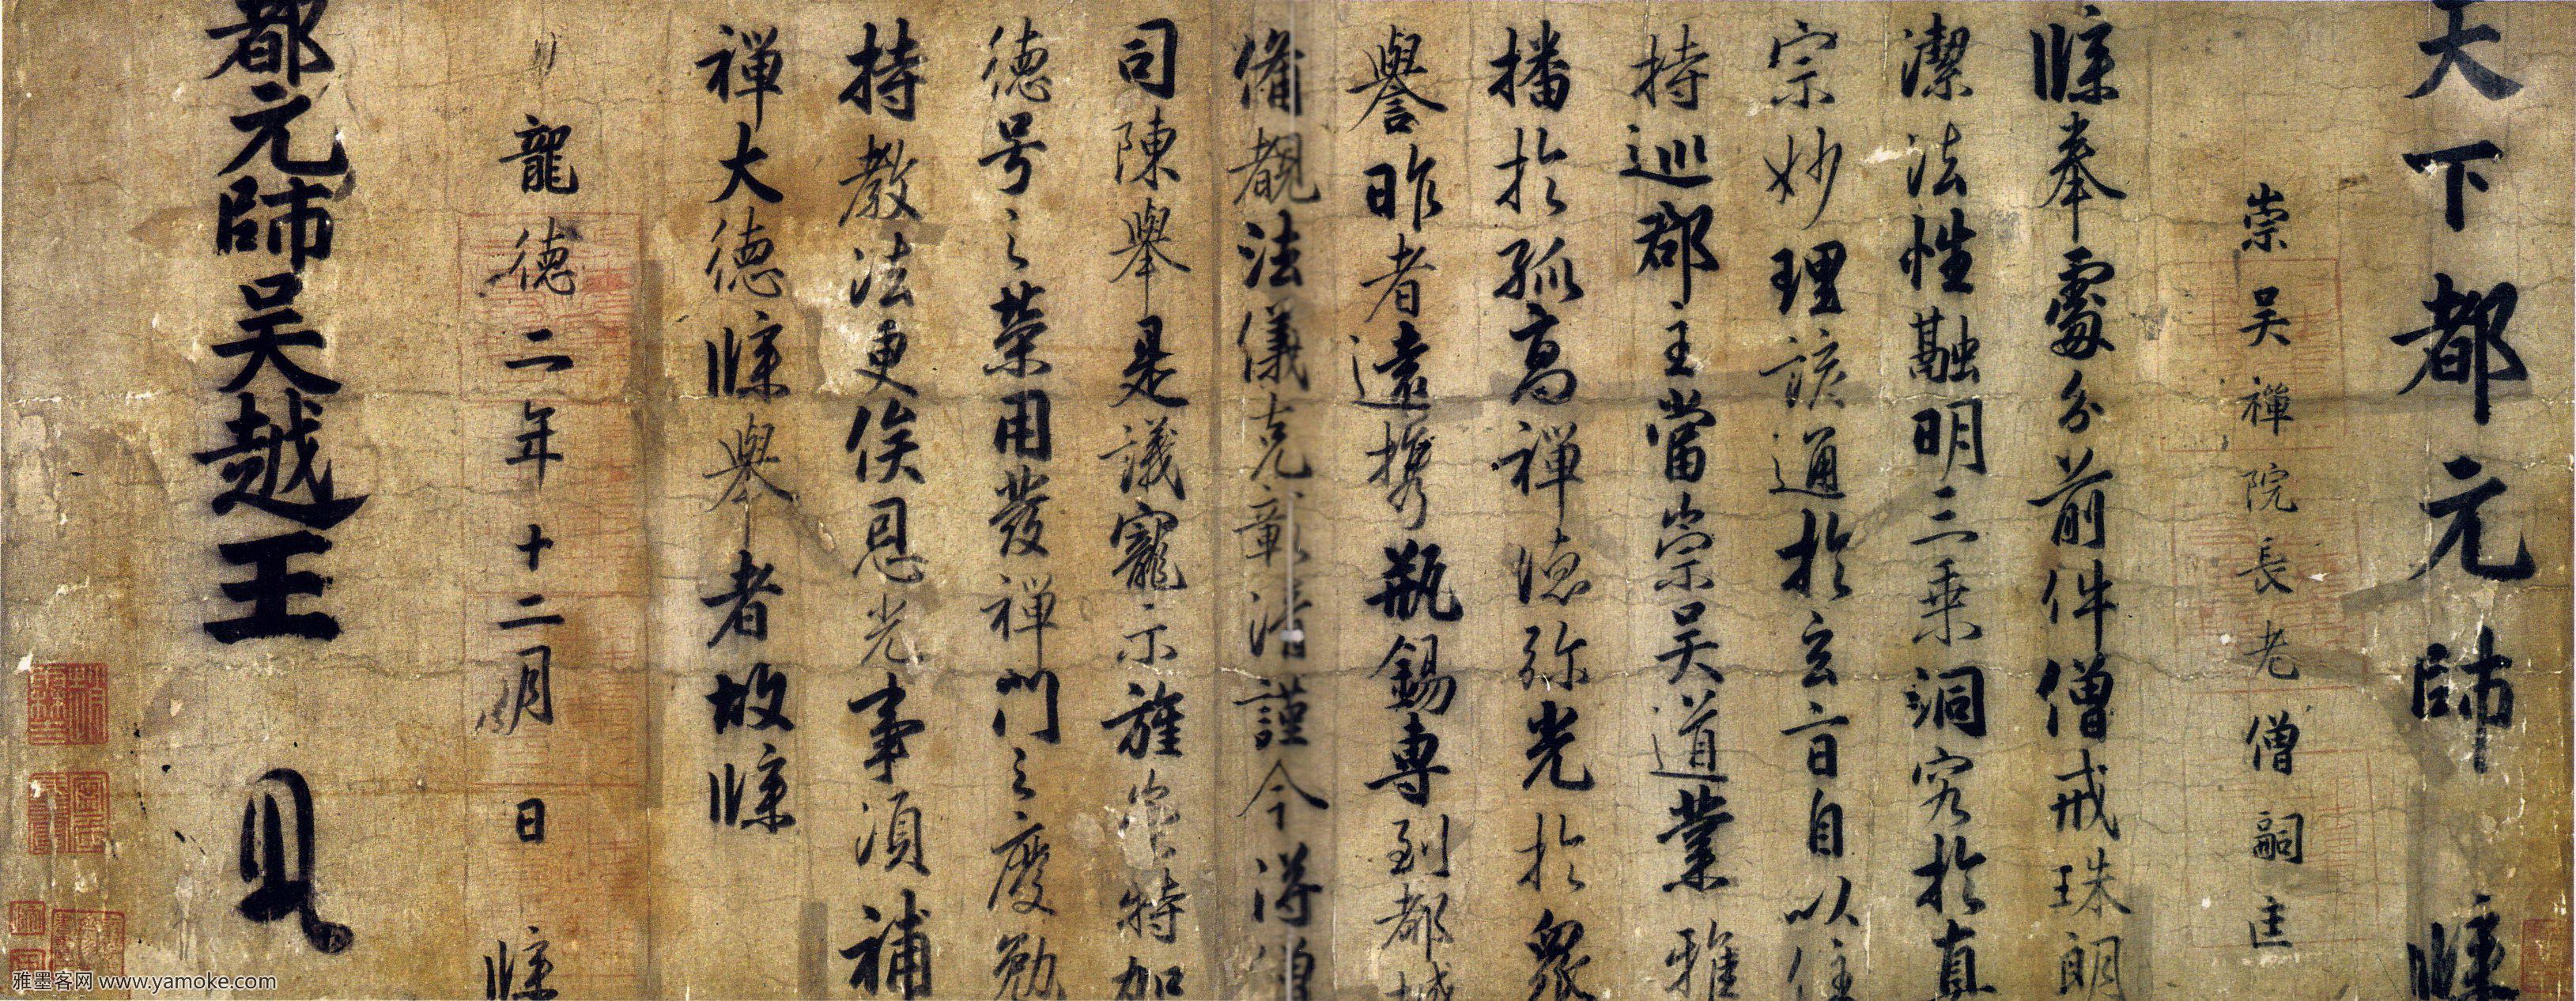 天下都元帥 牒
崇吴禪院長老僧嗣匡
牒奉處分前件僧戒珠朗
潔法性融明三乗洞究於真
宗妙理該通於玄言自以住
持巡郡主當崇吴道業雅
播於孤高禪德弥光於衆
譽昨者遠攜瓶錫專到都城
備覩法儀克彰清謹今得僧
司陳舉是議寵示旌 特加
德号之榮用發禪門之慶勉
持教法更俟恩光事須補
禪大德牒舉者故牒
龍德二年十二月 日 牒
都元帥吴越王
雅墨客网 www.yamoke.com